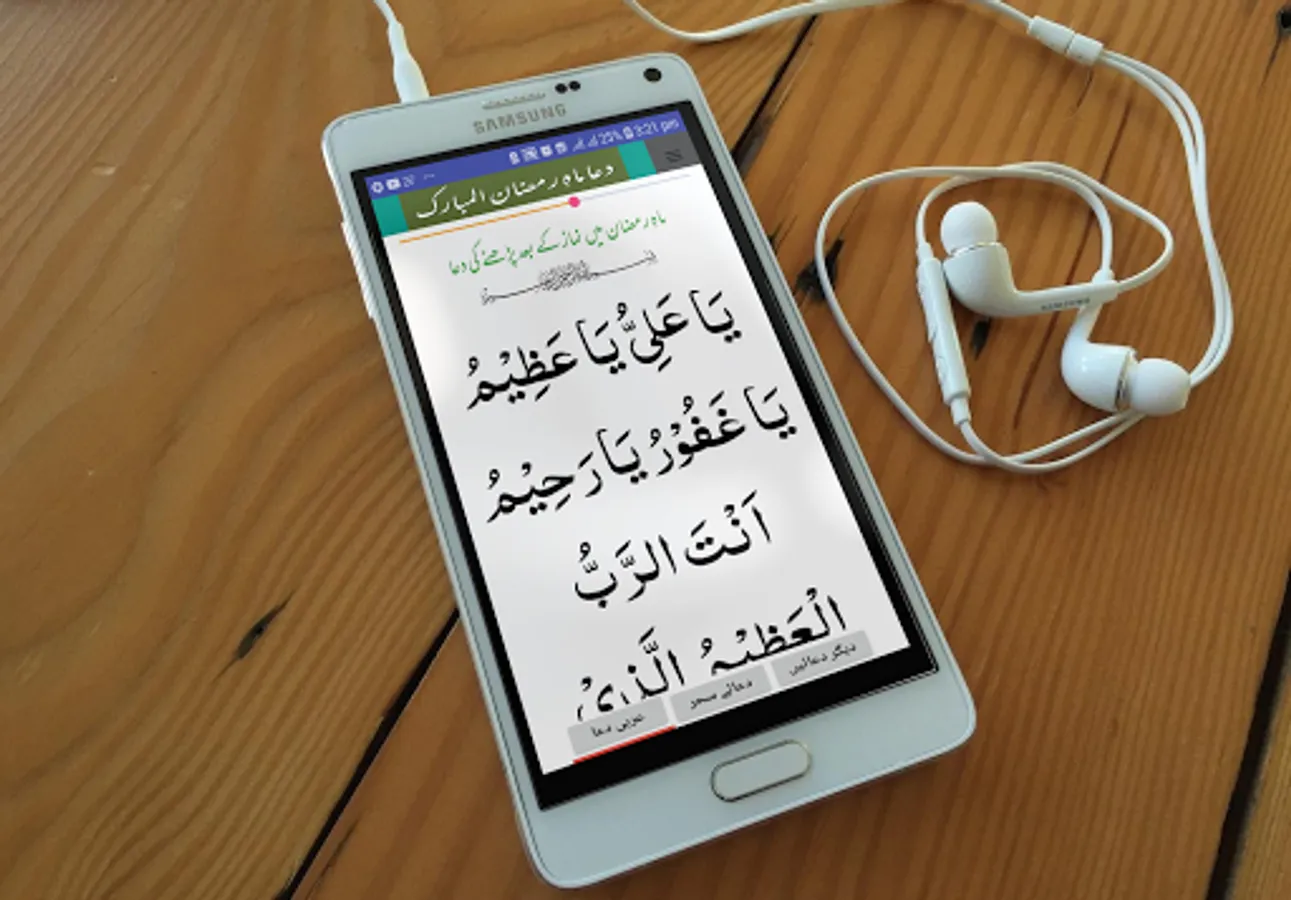 SAMSUNG
25% 3:21 pm
دعا ماہ رمضان المبارک
ماہ رمضان میں نماز کے بعد پڑھنے کی دعا
يَا عَلِیُّ يَا عَظِيْمُ
يَا غَفُوْرُ يَا رَحِيْمُ
اَنْتَ الرَّبُّ
الْعَظِيْمُ الَّذِیْ
دیگر دعائیں
دعائے سحر
عربی دعا
SAMSUNG